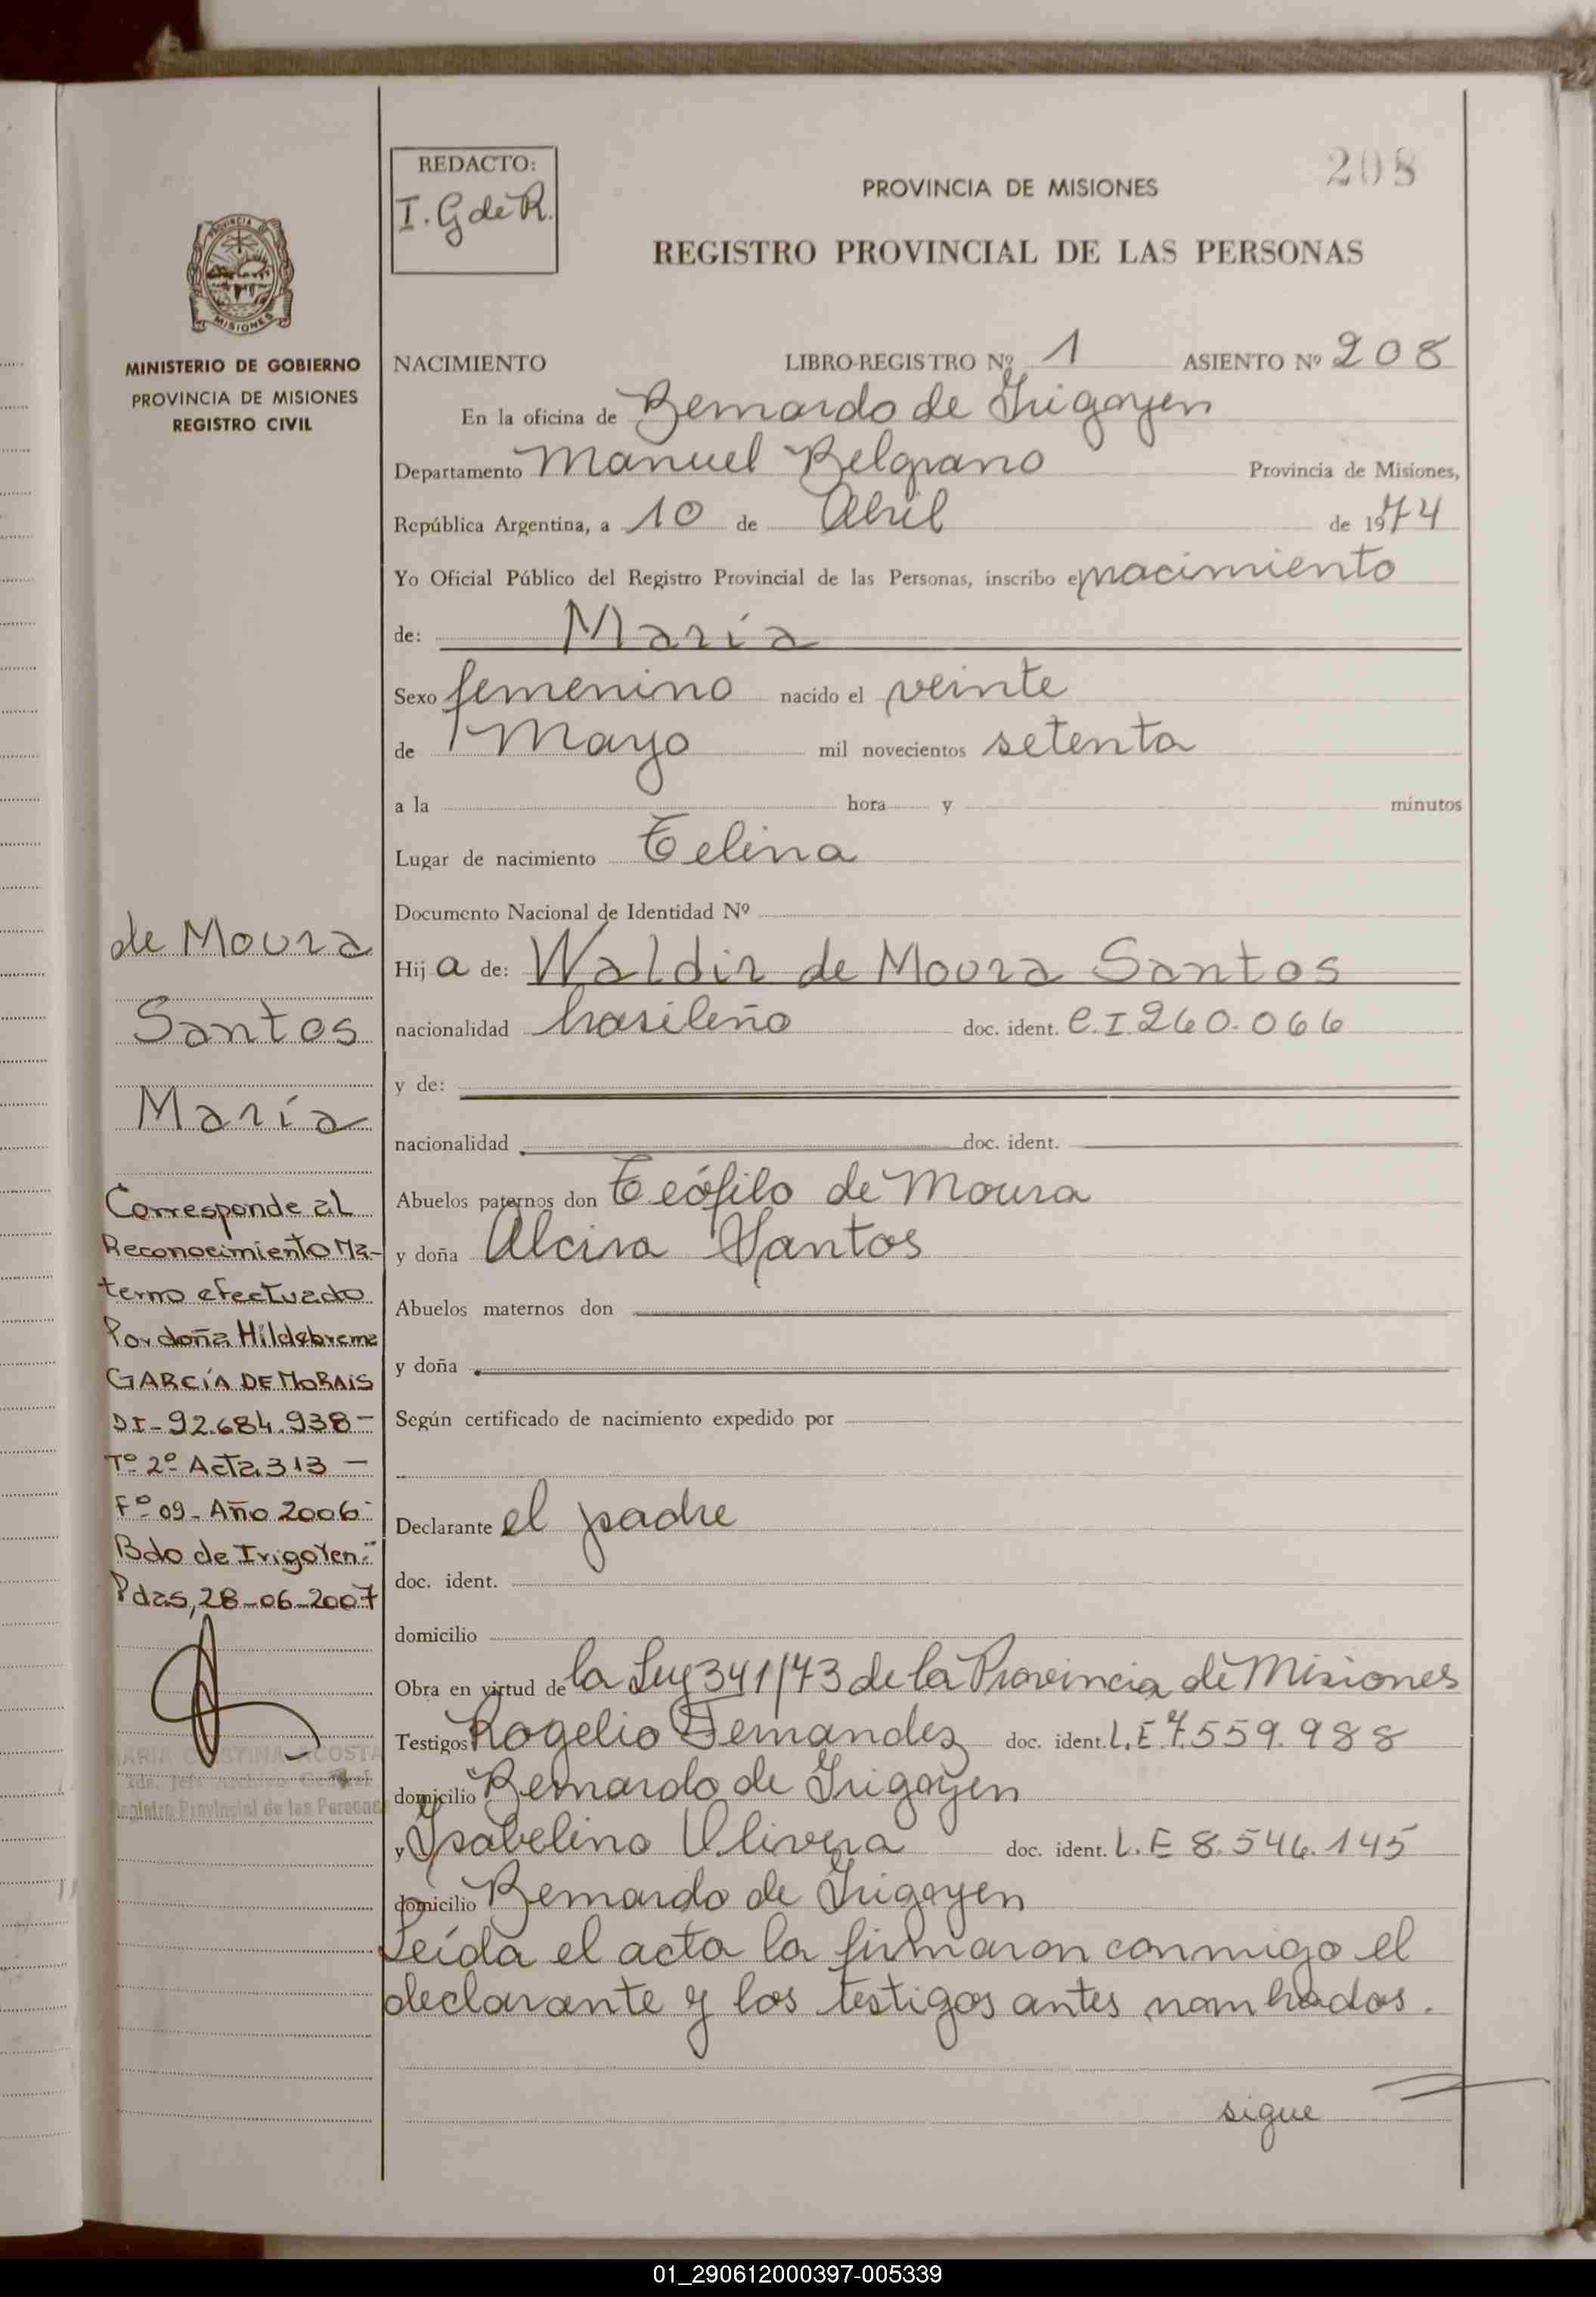 208
REDACTO:
I. G de R.
PROVINCIA DE MISIONES
REGISTRO PROVINCIAL DE LAS PERSONAS
PROVINCIA
MISIONES
MINISTERIO DE GOBIERNO
PROVINCIA DE MISIONES
REGISTRO CIVIL
NACIMIENTO LIBRO-REGISTRO Nº 1 ASIENTO Nº 208
En la oficina de Bernardo de Irigoyen
Departamento Manuel Belgrano Provincia de Misiones,
República Argentina, a 10 de Abril de 1974
Yo Oficial Público del Registro Provincial de las Personas, inscribo el nacimiento
de: María
Sexo femenino nacido el veinte
de Mayo mil novecientos setenta
a la hora y minutos
Lugar de nacimiento Celina
Documento Nacional de Identidad Nº
Hija de: Waldir de Moura Santos
nacionalidad brasileño doc. ident. C.I 260.066
y de:
nacionalidad doc. ident.
Abuelos paternos don Teófilo de Moura
y doña Alcira Santos
Abuelos maternos don
y doña
Según certificado de nacimiento expedido por
Declarante el padre
doc. ident.
domicilio
Obra en virtud de la Ley 341/73 de la Provincia de Misiones
Testigos Rogelio Fernandez doc. ident. L.E 7.559.988
domicilio Bernardo de Irigoyen
y Ysabelino Olivera doc. ident. L.E 8.546.145
domicilio Bernardo de Irigoyen
Leída el acta la firmaron conmigo el
declarante y los testigos antes nombrados.
sigue
de Moura
Santos
María
Corresponde al
Reconocimiento Ma-
terno efectuado
Por doña Hildebreme
GARCÍA DE MORAIS
DI-92.684.938-
Tº 2º Acta 313 -
Fº 09- Año 2006-
Bdo de Irigoyen.-
Pdas, 28-06-2007
MARIA CRISTINA ACOSTA
2da. Jefe Archivo General
Registro Provincial de las Personas
01_290612000397-005339